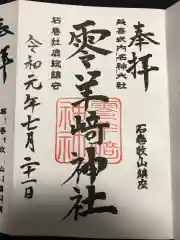 奉拝
延喜式内名神大社
石巻牧山鎮座
零羊崎神社
石巻牡鹿総鎮守
令和元年七月二十一日